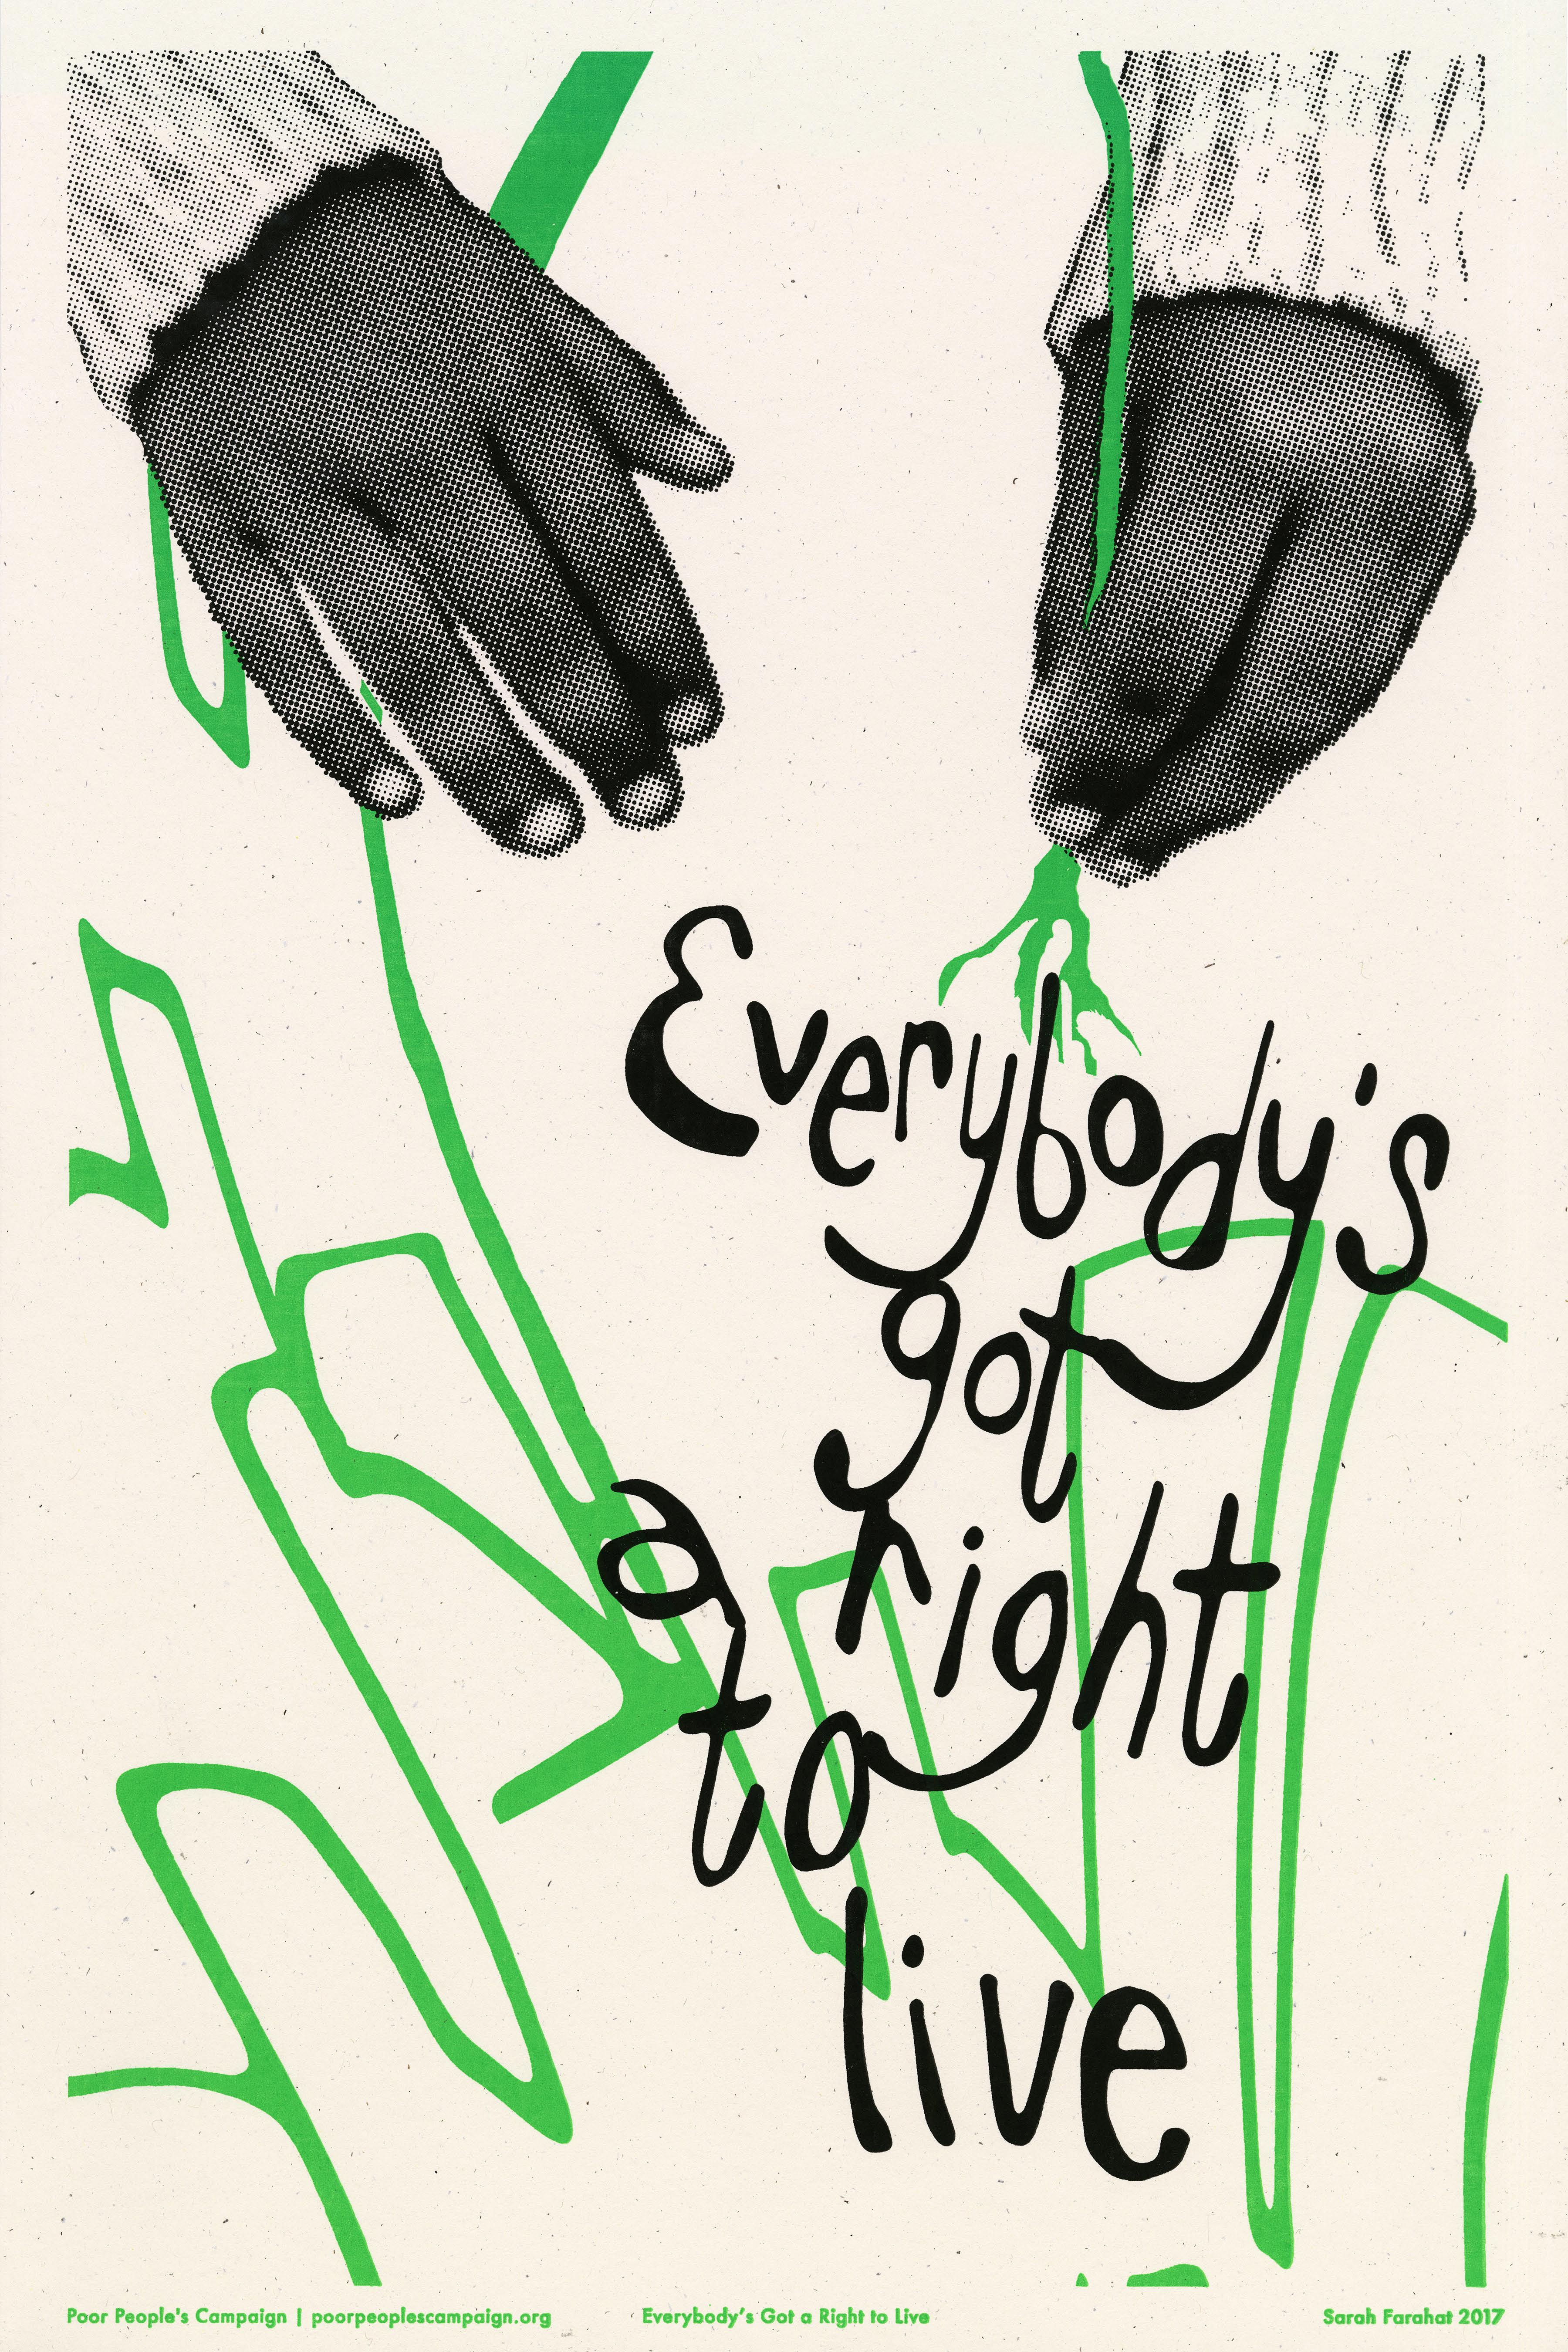 Everybody's
got
a right
to
live
Poor People's Campaign | poorpeoplescampaign.org
Everybody's Got a Right to Live
Sarah Farahat 2017